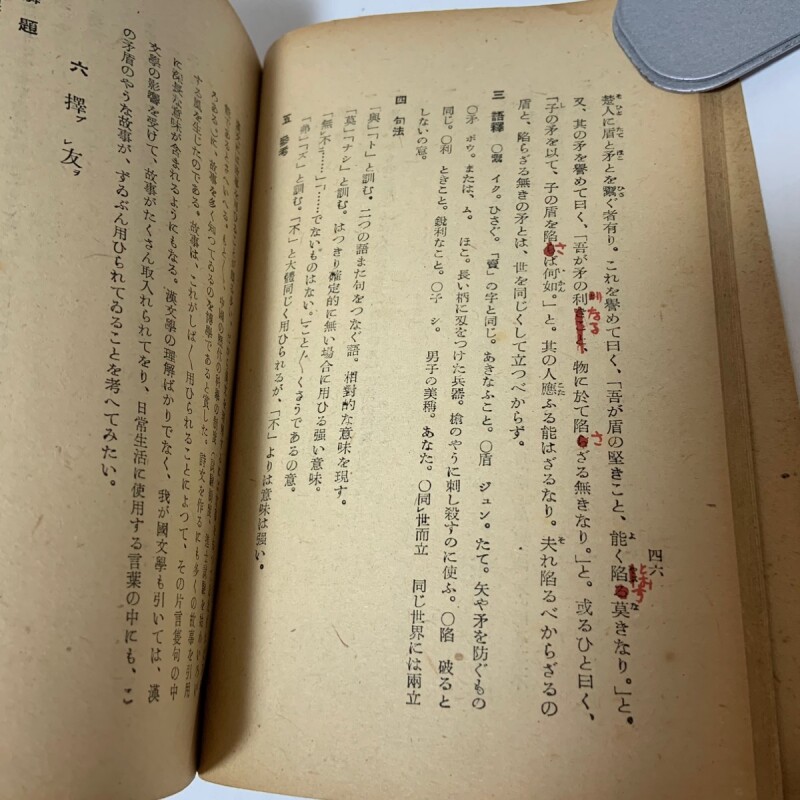 四六
楚人に盾と矛とを鬻ぐ者有り。これを譽めて曰く、「吾が盾の堅きこと、能く陷莫きなり。」と。
又、其の矛を譽めて曰く、「吾が矛の利なる 物に於て陷さざる無きなり。」と。或るひと曰く、
「子の矛を以て、子の盾を陷さば何如。」と。其の人應ふる能はざるなり。夫れ陷るべからざるの
盾と、陷らざる無きの矛とは、世を同じくして立つべからず。
三 語釋 〇鬻 イク。ひさぐ。「賣」の字と同じ。あきなふこと。〇盾 ジュン。たて。矢や矛を防ぐもの
〇矛 ボウ。または、ム。ほこ。長い柄に刄をつけた兵器。槍のやうに刺し殺すのに使ふ。〇陷 破ると
同じ。〇利 ときこと。銳利なこと。〇子 シ。男子の美稱。あなた。〇同レ世而立 同じ世界には兩立
しないの意。
四 句法
「與」「ト」と訓む。二つの語また句をつなぐ語。相對的な意味を現す。
「莫」「ナシ」と訓む。はつきり確定的に無い場合に用ひる强い意味。
「無レ不レ……」「……でないものはない。」こと〴〵くさうであるの意。
「弗」「ズ」と訓む。「不」と大體同じく用ひられるが、「不」よりは意味は强い。
五 參考
する風を生じたのである。故事は、これがしば〳〵用ひられることによつて、その片言隻句の中
に深長な意味が含まれるやうにもなる。漢文學の理解ばかりでなく、我が國文學も引いては、漢
文學の影響を受けて、故事がたくさん取入れられてをり、日常生活に使用する言葉の中にも、こ
の矛盾のやうな故事が、ずゐぶん用ひられてゐることを考へてみたい。
六 擇ブレ友ヲ
題